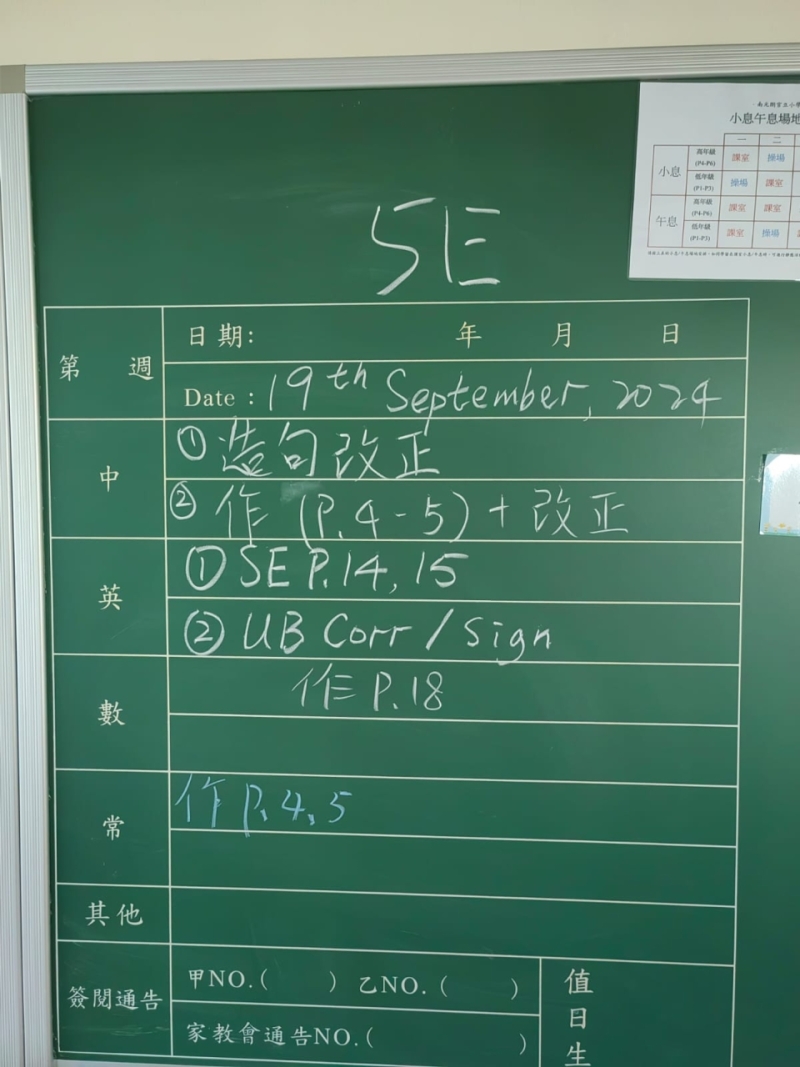 5E
小息午息場地
一 二
小息 高年級 (P4-P6) 課室 操場
低年級 (P1-P3) 操場 課室
午息 高年級 (P4-P6) 課室 課室
低年級 (P1-P3) 課室 操場
第 週 日期: 年 月 日
Date : 19th September, 2024
中 ① 造句改正
② 作 (P.4-5) + 改正
英 ① SE P.14, 15
② UB Corr / Sign
數 作 P.18
常 作 P.4,5
其他
簽閱通告 甲NO.( ) 乙NO.( )
家教會通告NO.( )
值日生